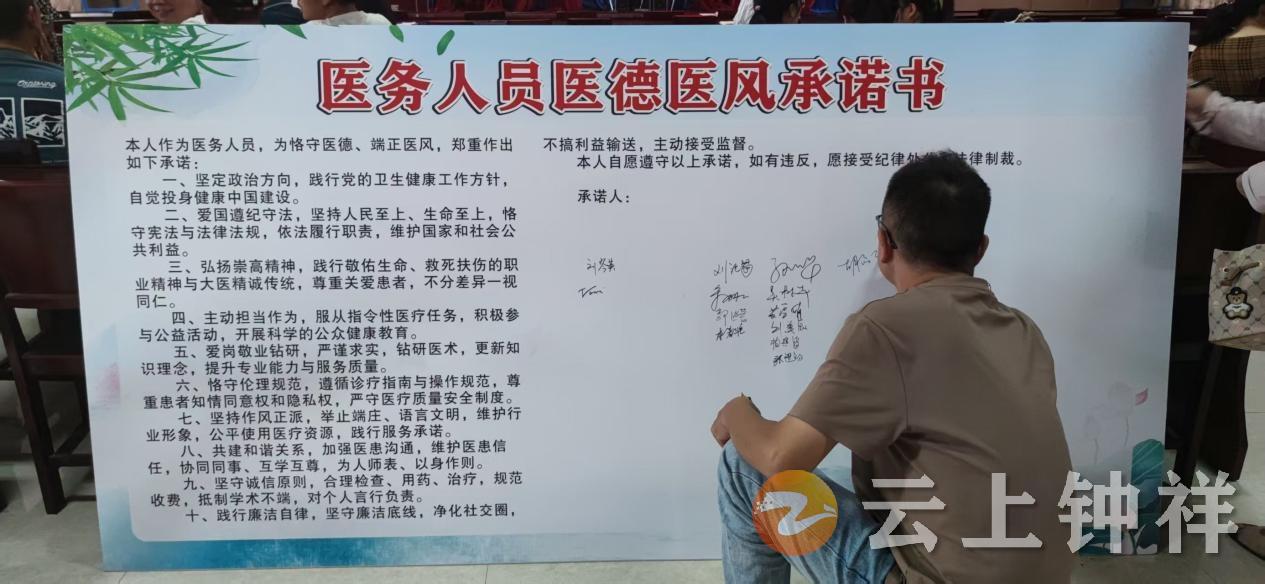 医务人员医德医风承诺书
本人作为医务人员，为恪守医德、端正医风，郑重作出
如下承诺：
一、坚定政治方向，践行党的卫生健康工作方针，
自觉投身健康中国建设。
二、爱国遵纪守法，坚持人民至上、生命至上，恪
守宪法与法律法规，依法履行职责，维护国家和社会公
共利益。
三、弘扬崇高精神，践行敬佑生命、救死扶伤的职
业精神与大医精诚传统，尊重关爱患者，不分差异一视
同仁。
四、主动担当作为，服从指令性医疗任务，积极参
与公益活动，开展科学的公众健康教育。
五、爱岗敬业钻研，严谨求实，钻研医术，更新知
识理念，提升专业能力与服务质量。
六、恪守伦理规范，遵循诊疗指南与操作规范，尊
重患者知情同意权和隐私权，严守医疗质量安全制度。
七、坚持作风正派，举止端庄、语言文明，维护行
业形象，公平使用医疗资源，践行服务承诺。
八、共建和谐关系，加强医患沟通，维护医患信
任，协同同事、互学互尊，为人师表、以身作则。
九、坚守诚信原则，合理检查、用药、治疗，规范
收费，抵制学术不端，对个人言行负责。
十、践行廉洁自律，坚守廉洁底线，净化社交圈，
不搞利益输送，主动接受监督。
本人自愿遵守以上承诺，如有违反，愿接受纪律处 法律制裁。
承诺人：
云上钟祥